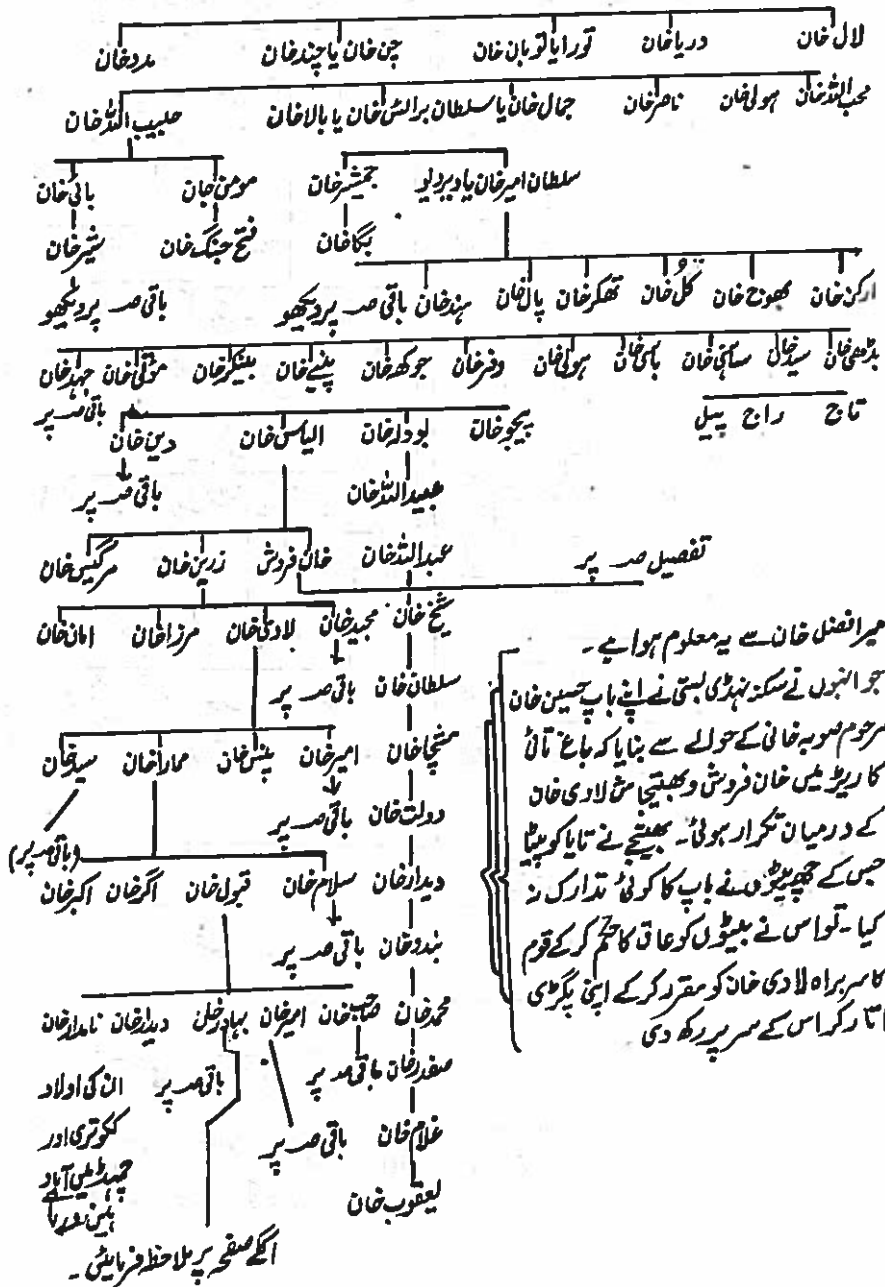 لال خان دریا خان تورا یا توبان خان چن خان یا چند خان مدد خان
محب اللہ خان ہولی خان ناصر خان جمال خان یا سلطان برالش خان یا بالا خان حبیب اللہ خان
سلطان امیر خان یا دیر دیو جمشیر خان مومن خان بائی خان
بگا خان فتح جنگ خان شیر خان
ارکن خان بھونح خان گل خان تھکر خان پال خان ہند خان باقی صہ پر دیکھو باقی صہ پر دیکھو
بڈھی خان سید خان ساہنی خان باسی خان ہولی خان وفر خان جوکھ خان پننے خان بھنیکر خان موتی خان جہد خان
تاج راج پیل باقی صہ پر
پیجو خان بودلہ خان الیاس خان دین خان
عبید اللہ خان باقی صہ پر
عبد اللہ خان خان فروش زرین خان سرگیس خان
تفصیل صہ پر
شیخ خان مجید خان لادی خان مرزا خان امان خان
سلطان خان باقی صہ پر
خان امیر خان پنس خان مارا خان سید خان
دولت خان باقی صہ پر (باقی صہ پر)
دیدار خان سلام خان قبول خان اگر خان اکبر خان
بندو خان باقی صہ پر
محمد خان صاحب خان امیر خان بہادر خان دیدار خان نامدار خان
صفدر خان باقی صہ پر باقی صہ پر ان کی اولاد
غلام خان باقی صہ پر ککوتری اور
یعقوب خان آباد
ہیں
اگلے صفحہ پر ملاحظہ فرمائیں ۔
میر افضل خان سے یہ معلوم ہوا ہے ۔
جو انہوں نے سکنہ نہڑی بستی نے اپنے باپ حسین خان
مرحوم صوبہ خانی کے حوالے سے بتایا کہ باغ تائی
کاریڑ میں خان فروش و بھتیجا ش لادی خان
کے درمیان تکرار ہوئی ۔ بھتیجے نے تایا کو پیٹا
جس کے نے باپ کا کوئی تدارک نہ
کیا ۔ تو اس نے بیٹوں کو عاق کا حکم کر کے قوم
کا سربراہ لادی خان کو مقرر کر کے اپنی پگڑی
اتار کر اس کے سر پر رکھ دی